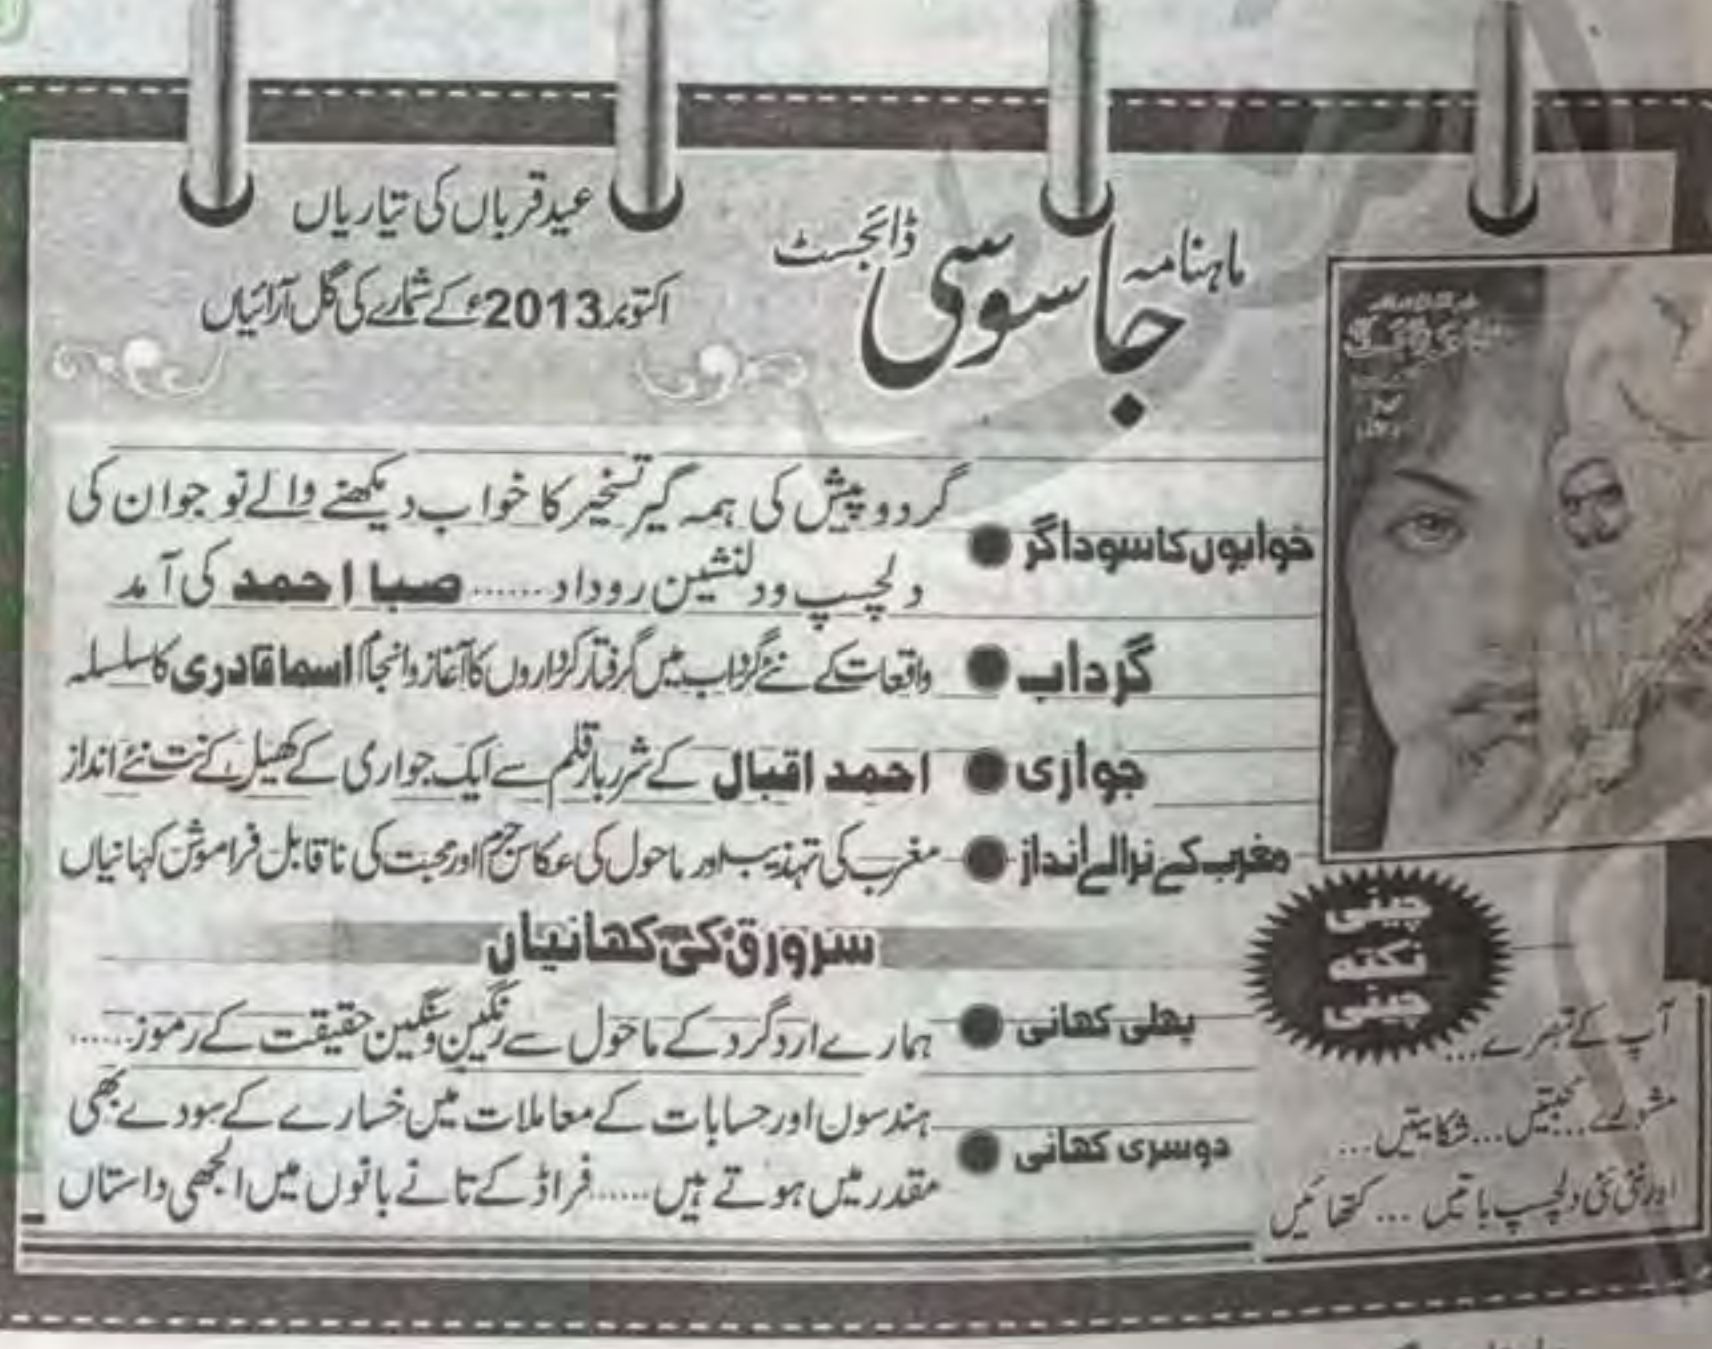 ماہنامہ جاسوسی ڈائجسٹ
عید قرباں کی تیاریاں
اکتوبر 2013ء کے شمارے کی گل آرائیاں
خوابوں کا سوداگر ● گرد و پیش کی ہمہ گیر تسخیر کا خواب دیکھنے والے نوجوان کی
دلچسپ و دلنشین روداد...... صبا احمد کی آمد
گرداب ● واقعات کے نئے گرداب میں گرفتار کرداروں کا آغاز و انجام اسما قادری کا سلسلہ
جواری ● احمد اقبال کے شرربار قلم سے ایک جواری کے کھیل کے نت نئے انداز
مغرب کے نرالے انداز ● مغرب کی تہذیب اور ماحول کی عکاس جرم اور محبت کی ناقابل فراموش کہانیاں
سرورق کی کہانیاں
پہلی کہانی ● ہمارے اردگرد کے ماحول سے رنگین و سنگین حقیقت کے رموز.....
دوسری کہانی ● ہندسوں اور حسابات کے معاملات میں خسارے کے سودے بھی
مقدر میں ہوتے ہیں......فراڈ کے تانے بانوں میں الجھی داستاں
چینی
نکتہ
چینی
آپ کے تبصرے...
مشورے...محبتیں...شکایتیں...
اور نئی نئی دلچسپ باتیں... کتھائیں